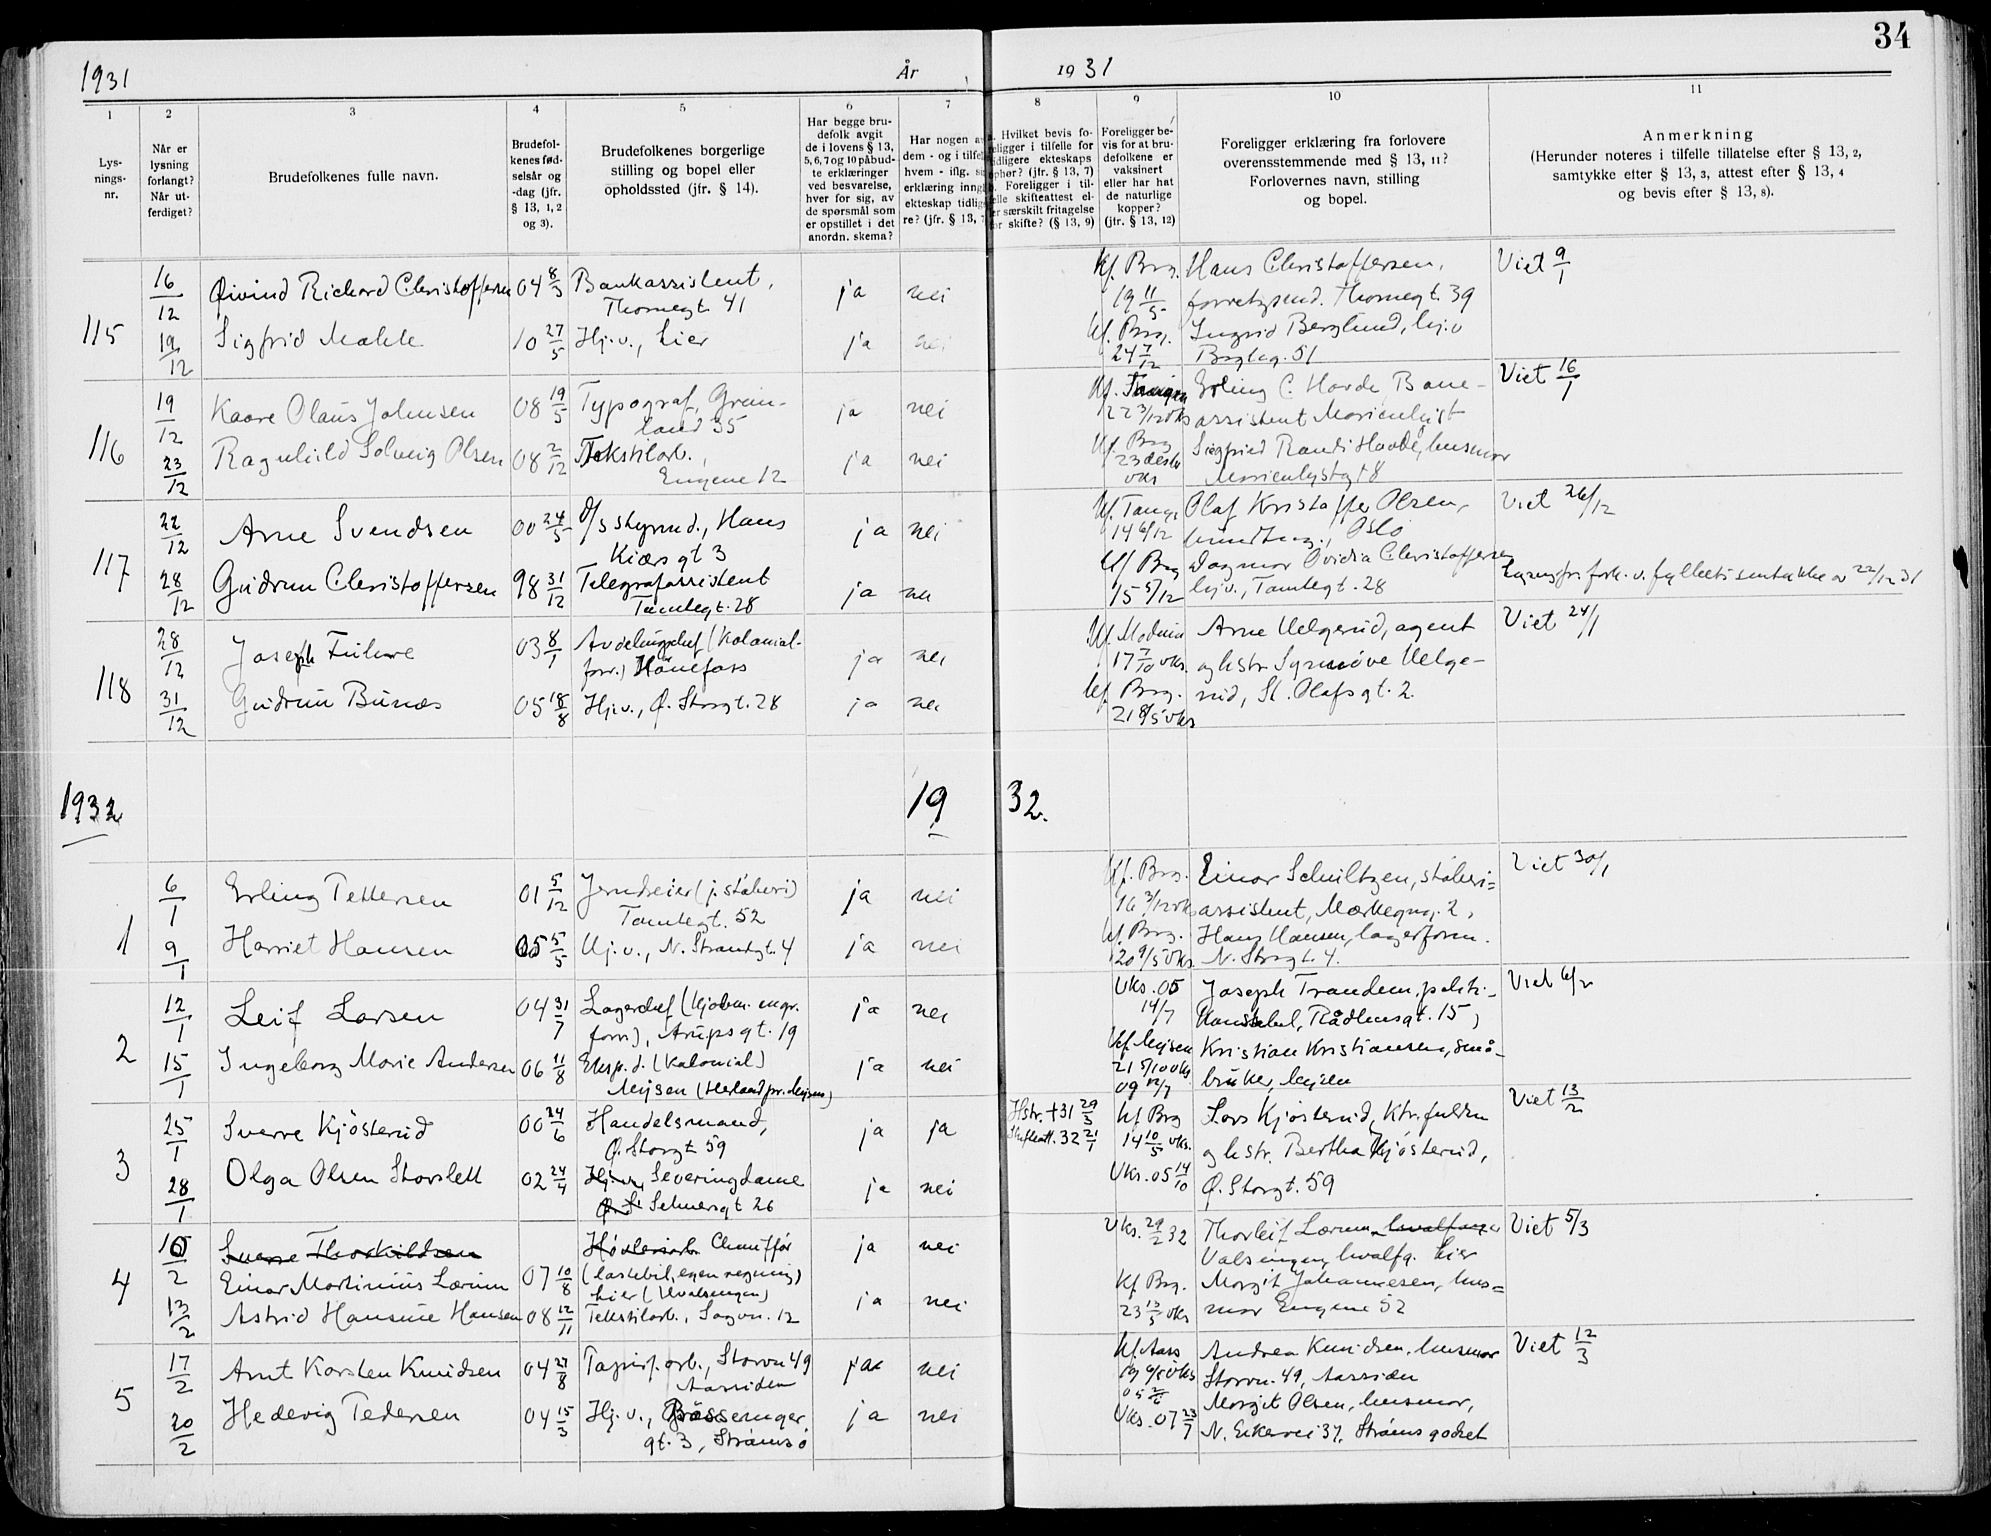 34
1931
År
1931
1
2
3
4
5
6
7
8
9
10
11
Lys-
nings-
nr.
Når er
lysning
forlangt?
Når ut-
ferdiget?
Brudefolkenes fulle navn.
Brudefol-
kenes fød-
selsår og
-dag (jfr.
§ 13, 1, 2
og 3).
Brudefolkenes borgerlige
stilling og bopel eller
opholdssted (jfr. § 14).
Har begge bru-
defolk avgit
de i lovens § 13,
5, 6, 7 og 10 påbud-
te erklæringer
ved besvarelse,
hver for sig, av
de spørsmål som
er opstillet i det
anordn. skema?
Har nogen a
dem - og i tilfel
hvem - iflg. s
erklæring inngå
ekteskap tidlig
re? (jfr. § 13, 7
Hvilket bevis fo-
religger i tilfelle for
tidligere ekteskaps
ophør? (jfr. § 13, 7)
Foreligger i til-
felle skifteattest el-
ler særskilt fritagelse
for skifte? (§ 13, 9)
Foreligger be-
vis for at bru-
defolkene er
vaksinert
eller har hat
de naturlige
kopper?
(jfr. § 13, 12)
Foreligger erklæring fra forlovere
overensstemmende med § 13, 11?
Forlovernes navn, stilling
og bopel.
Anmerkning
(Herunder noteres i tilfelle tillatelse efter § 13, 2,
samtykke efter § 13, 3, attest efter § 13, 4
og bevis efter § 13, 8).
115
16/12 Øivind Richard Christoffersen 04 8/3 Bankassistent, ja nei Kf. Brg. Hans Christoffersen, Viet 9/1
Thornegt. 41 19 11/5 Thornegt. 39
19/12 Sigfrid 10 27/5 Hj.v., Lier ja nei Kf. Brg. Ingrid Berglund, hj.v
24 7/12 51
116
19/12 Kaare Olaus Johnsen 08 19/5 Typograf, Grøn- ja nei Kf. Erling C. Hovde, Bane- Viet 16/1
land 35 22 3/12 vks assistent Marienlyst
23/12 Ragnhild Solveig Olsen 08 2/12 Tekstilarb., ja nei Kf. Brg Randi Hovde, husmor
Engene 12 vks Marienlystgt 8
117
22/12 Arne Svendsen 00 24/5 Hans ja nei Kf. Tang. Olaf Kristoffer Olsen, Viet 26/12
Kiærs gt 3 14 6/12 Oslo
28/12 Gudrun Christoffersen 98 31/12 Telegrafassistent ja nei Kf Brg Dagmar Ovidia Christoffersen
Tomtegt. 28 15 5/12 hj.v., Tomtegt. 28 22/12 31
118
28/12 Joseph 03 8/1 Avdelingschef (Kolonial- ja nei Kf. Modum Arne Helgerud, agent Viet 24/1
forr.) Hønefoss 17 7/10 vks. og hstr. Synnøve Helge-
31/12 Gudrun Bunæs 05 18/8 Hj.v., Ø. Storgt. 28 ja nei Kf. Brg. rud, St. Olafs gt. 2.
21 8/5 vks
1932
19 32.
1
6/1 Erling Pettersen 01 5/12 Jerndreier (j. støberi) ja nei Kf. Brg. Einar Schultzen, støberi= Viet 30/1
Tomtegt. 52 16 3/12 vk assistent, 2,
9/1 Harriet Hansen 05 5/5 Hj.v., N. Strandgt. 4 ja nei Kf. Brg. Hans Hansen, lagerform.
20 9/5 vks N. Strgt. 4.
2
12/1 Leif Larsen 04 31/7 Lagerchef (Kjøbm. engr. ja nei Vks. 05 Joseph Trandem, politi- Viet 6/2
forr.), Arups gt. 19 14/7 konstabel, Rådhusgt. 15,
15/1 Ingeborg Marie Andersen 06 11/8 Eksp.d. (Kolonial) ja nei Kf. Mysen Kristian Kristiansen, små-
Mysen (Herland pr. Mysen) 21 5/10 vks bruker, Mysen
09 12/7
3
25/1 Sverre Kjøsterud 00 24/6 Handelsmand, ja ja Hstr. +31 29/3 Kf Brg Lars Kjøsterud, Viet 13/2
Ø. Storgt 59 Skifteatt. 32 21/1 14 10/5 vks. og hstr. Bertha Kjøsterud,
28/1 Olga Olsen Storslett 02 24/4 Hj.v. Severingdame ja nei Vks. 05 14/10 Ø. Storgt. 59
Ø. S Selmersgt 26
4
10/2 Sverre Thorkildsen Chauffør ja nei Vks. 29/2 32 Thorleif Lærum, hvalfanger Viet 5/3
Einar Martinius Lærum 07 10/8 (lastebil, egen regning) hvalfg. Lier
Lier Kf Brg. Margit Johannesen, hus=
13/2 Astrid Hansine Hansen 08 12/11 Tekstilarb., Sagvn. 12 ja nei 23 13/5 vks mor Engene 52
5
17/2 Arnt Karsten Knudsen 04 27/8 Papirf.arb., Storvn 49 ja nei Kf. Aass Andrea Knudsen, husmor Viet 12/3
Aassiden Storvn. 49, Aassiden
20/2 Hedevig Pedersen 04 15/3 Hj.v., ja nei Vks. 07 23/7 Margit Olsen, husmor,
gt. 3, Strømsø N. Eikervei 37, Strømsgodset